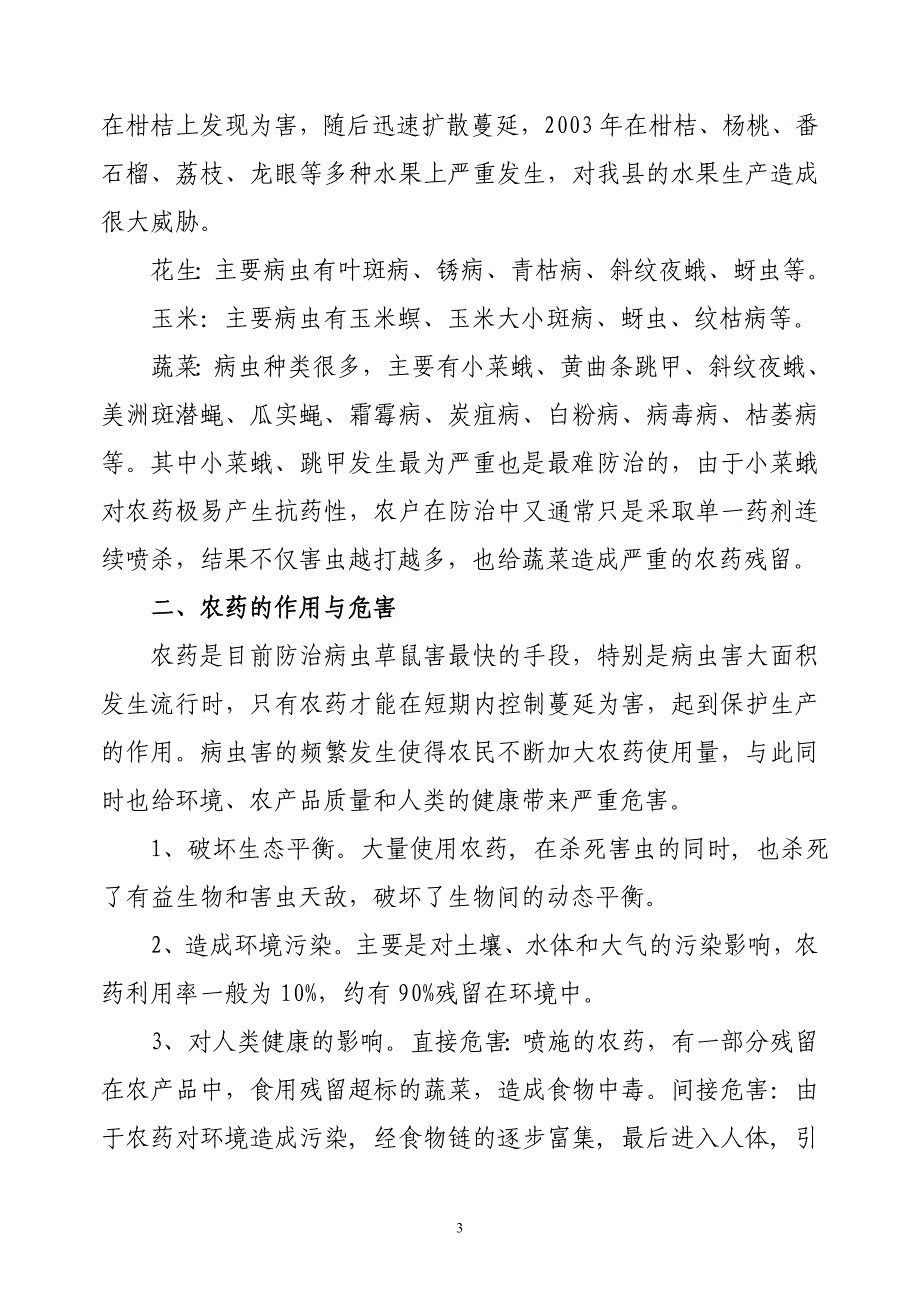 在柑桔上发现为害，随后迅速扩散蔓延，2003 年在柑桔、杨桃、番
石榴、荔枝、龙眼等多种水果上严重发生，对我县的水果生产造成
很大威胁。
花生：主要病虫有叶斑病、锈病、青枯病、斜纹夜蛾、蚜虫等。
玉米：主要病虫有玉米螟、玉米大小斑病、蚜虫、纹枯病等。
蔬菜：病虫种类很多，主要有小菜蛾、黄曲条跳甲、斜纹夜蛾、
美洲斑潜蝇、瓜实蝇、霜霉病、炭疽病、白粉病、病毒病、枯萎病
等。其中小菜蛾、跳甲发生最为严重也是最难防治的，由于小菜蛾
对农药极易产生抗药性，农户在防治中又通常只是采取单一药剂连
续喷杀，结果不仅害虫越打越多，也给蔬菜造成严重的农药残留。
二、农药的作用与危害
农药是目前防治病虫草鼠害最快的手段，特别是病虫害大面积
发生流行时，只有农药才能在短期内控制蔓延为害，起到保护生产
的作用。病虫害的频繁发生使得农民不断加大农药使用量，与此同
时也给环境、农产品质量和人类的健康带来严重危害。
1、破坏生态平衡。大量使用农药，在杀死害虫的同时，也杀死
了有益生物和害虫天敌，破坏了生物间的动态平衡。
2、造成环境污染。主要是对土壤、水体和大气的污染影响，农
药利用率一般为 10%，约有 90%残留在环境中。
3、对人类健康的影响。直接危害：喷施的农药，有一部分残留
在农产品中，食用残留超标的蔬菜，造成食物中毒。间接危害：由
于农药对环境造成污染，经食物链的逐步富集，最后进入人体，引
3